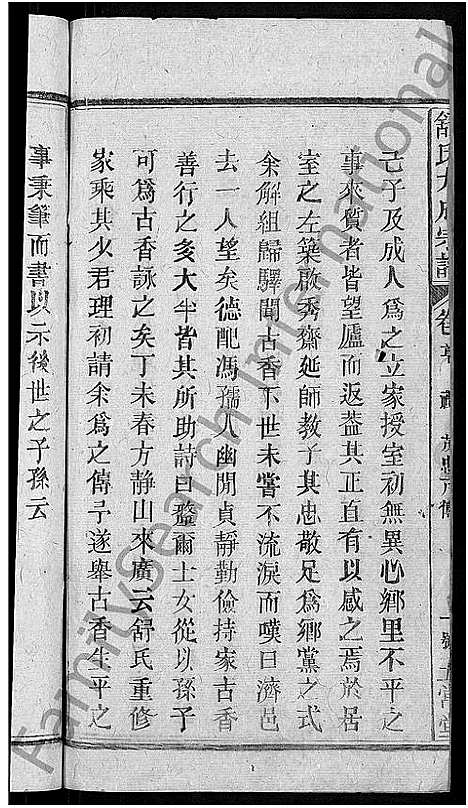 舒氏大成宗譜
己子及成人爲之立家授室初無異心鄉里不平之
事來質者皆望廬而返葢其正直有以感之焉於居
室之左築啟秀齋延師教子其忠敬足爲鄉黨之式
余解組歸驛聞古香下世未嘗不流淚而嘆曰濟邑
去一人望矣德配馮孺人幽閒貞靜勤儉持家古香
善行之多大半皆其所助詩曰釐爾士女從以孫子
可爲古香詠之矣丁未春方靜山來廣云舒氏重修
家乘其少君理初請余爲之傳予遂舉古香生平之
事秉筆而書以示後世之子孫云
FamilySearch International